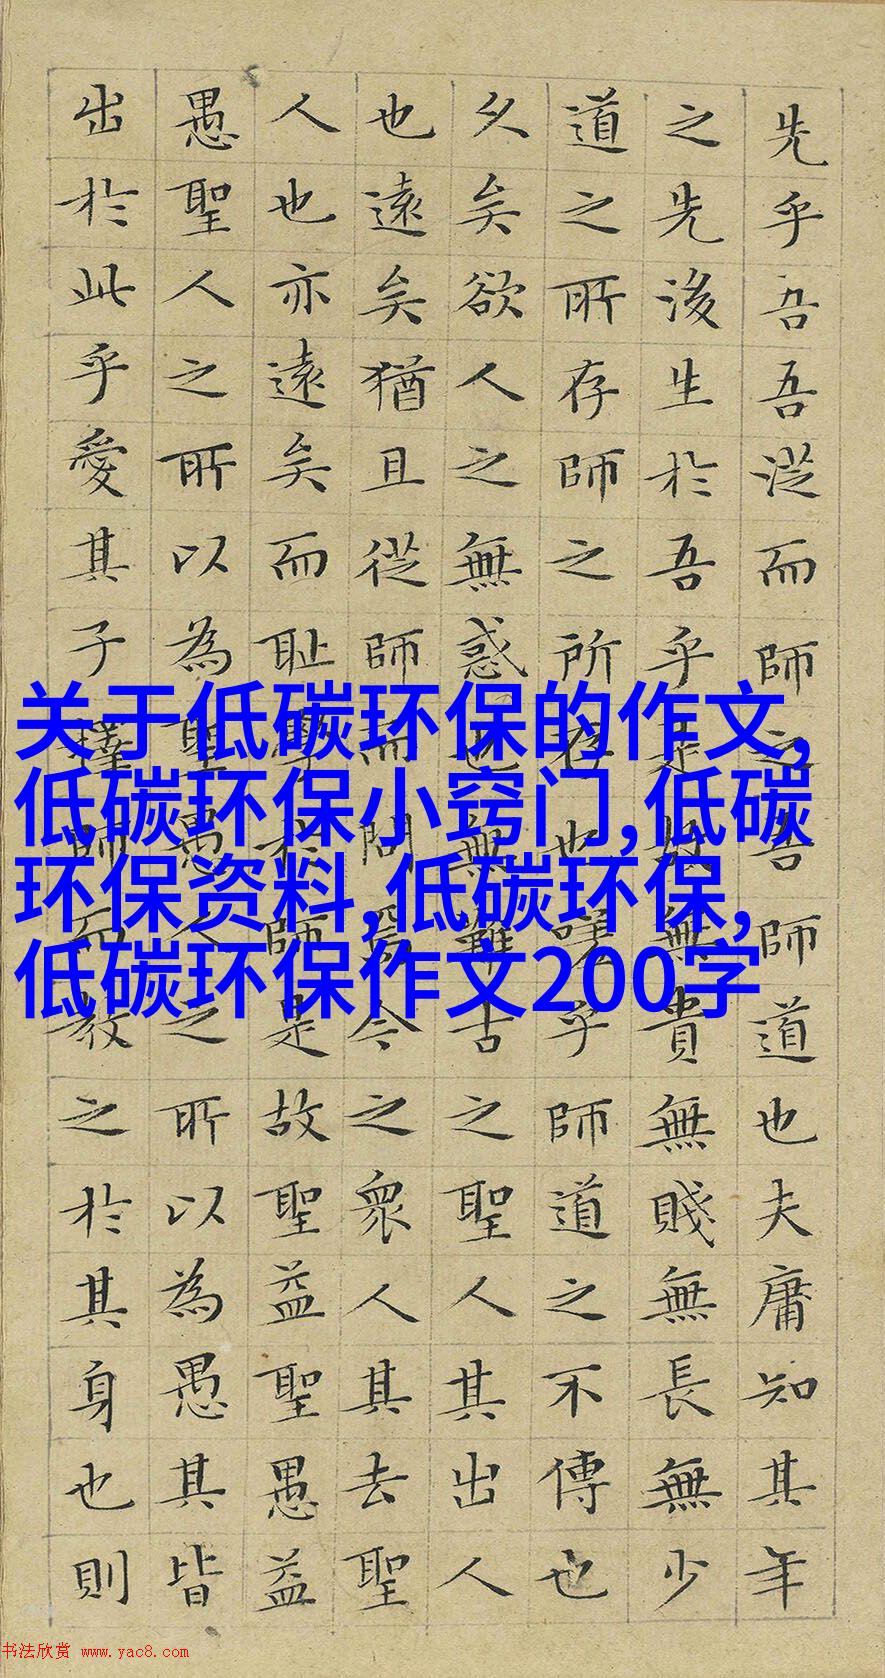 先乎吾吾從而師之吾師道也夫庸知其年
之先後生於吾乎是故無貴無賤無長無少
道之所存師之所存也嗟乎師道之不傳也
久矣欲人之無惑也無難古之聖人其出人
也遠矣猶且從師而問焉今之衆人其去聖
人也亦遠矣而耻學於師是故聖益聖愚益
愚聖人之所以為聖愚人之所以為愚其皆
出於此乎愛其子擇師而教之於其身也則
关于低碳环保的作文,
低碳环保小窍门,低碳
环保资料,低碳环保,
低碳环保作文200字
书法欣赏 www.yac8.com